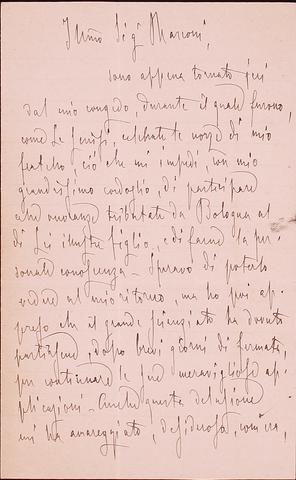 Ill.mo Sig.r Marconi,
sono appena tornato qui
dal mio congedo, durante il quale furono,
come Le scrissi, celebrate le nozze di mio
fratello, ciò che mi impedì, con mio
grandissimo cordoglio, di partecipare
alle onoranze tributate da Bologna al
di Lei illustre figlio, e di farne la per-
sonale conoscenza - Speravo di poterlo
vedere al mio ritorno, ma ho poi ap-
preso che il grande scienziato ha dovuto
partirsene, dopo brevi giorni di fermata,
per continuare le sue meravigliose ap-
plicazioni - Anche questa delusione
mi ha amareggiato, desideroso, com'ero,